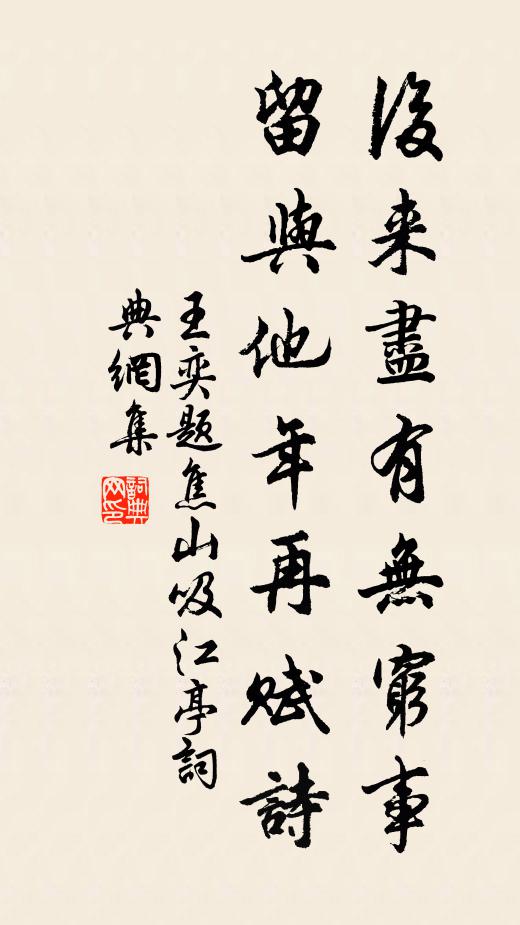 後来盡有無窮事
留與他年再賦詩
王奕題焦山吸江亭詞
典網集
詞典
网印